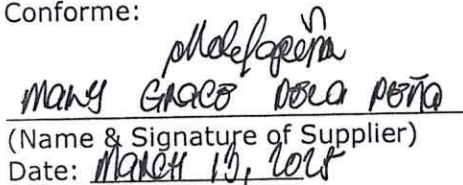 Conforme:
MARY GRACE DELA PEÑA
(Name & Signature of Supplier)
Date: MARCH 13, 2025